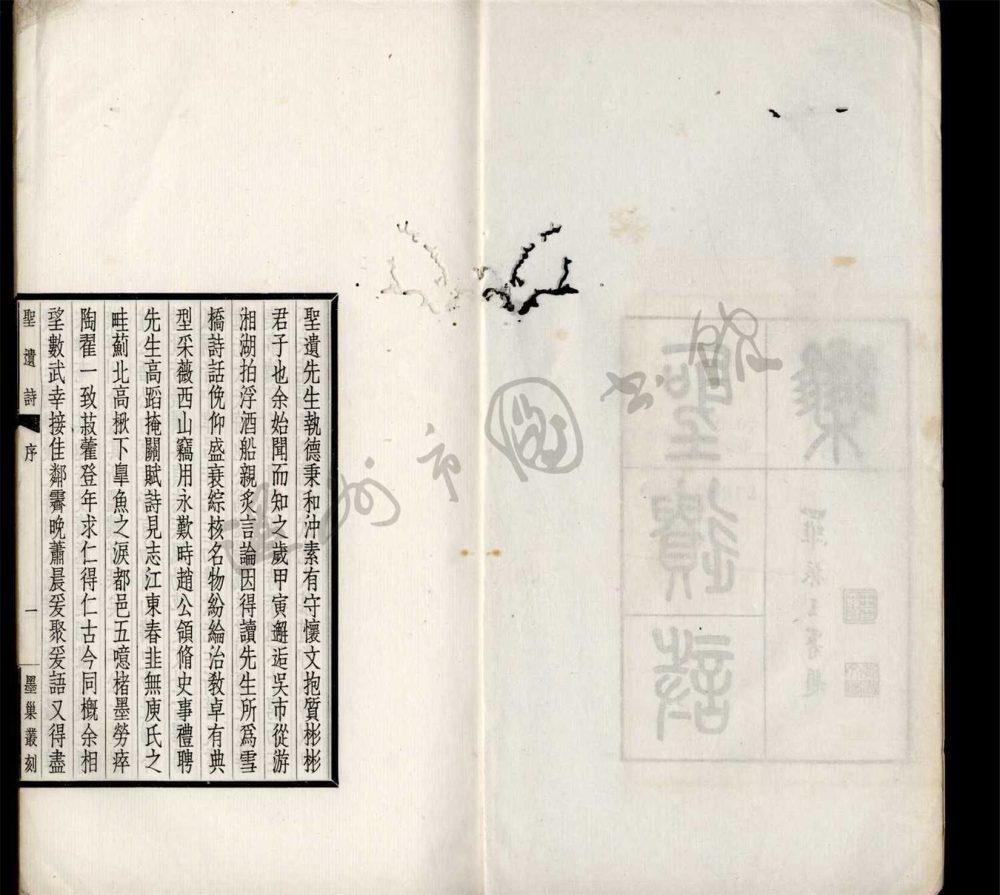 聖遺先生執德秉和沖素有守懷文抱質彬彬
君子也余始聞而知之歲甲寅邂逅吳市從游
湘湖拍浮酒船親炙言論因得讀先生所爲雪
橋詩話俛仰盛衰綜核名物紛綸治教卓有典
型采薇西山竊用永歎時趙公領脩史事禮聘
先生高蹈掩關賦詩見志江東春韭無庾氏之
畦薊北高楸下臯魚之淚都邑五噫楮墨勞瘁
陶翟一致菽藿登年求仁得仁古今同槪余相
望數武幸接佳鄰霽晚蕭晨爰聚爰語又得盡
聖遺詩 序 一 墨巢叢刻
聖遺詩